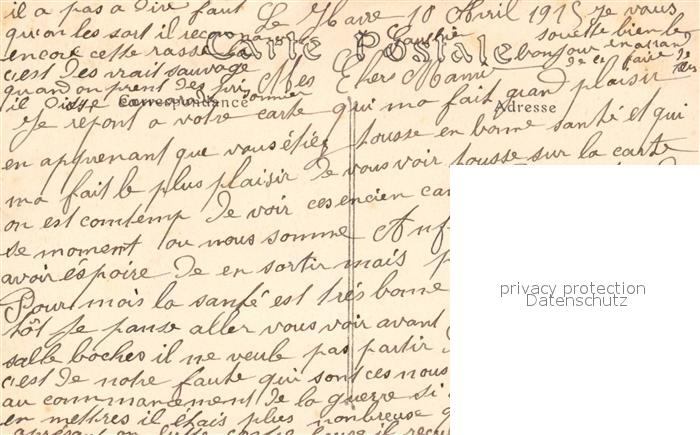 il a pas a dire faut
qu'on les sort il reconna
encore cette rasse la
c'est des vrait sauvage
quand on prent des pri
il disse camarade
sonnier
Le Havre 10 Avril 1915 je vous
souette bien le
bonjour en atten
de ce faire
Carte Postale
Mes Chers Mami
Correspondance
Adresse
Je repont a votre carte qui ma fait grand plaisir
en apprenant que vous étiez tousse en bonne santé et qui
ma fait le plus plaisir de vous voir tousse sur la carte
on est comtemp de voir ces encien ca
se moment ou nous somme
avoir éspoire de en sortir mais
Pour mois la santé est très bonne
tôt je pause aller vous voir avant
salle boches il ne veule pas partir
c'est de notre faute qui sont ces nous
au commancement de la guerre si
en mettres il étais plus nombreuse
privacy protection
Datenschutz